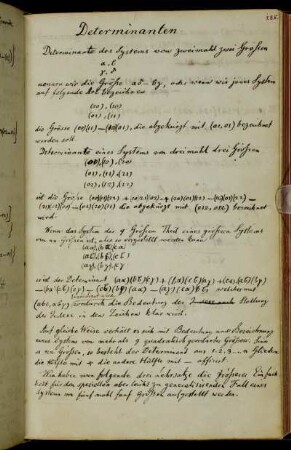 Determinanten
Determinante des Systems von zweimahl zwei Größen
α. β
γ. δ
nennen wir die Größe αδ − βγ, oder wenn wir jenes System
auf folgende Art bezeichnen
(00), (10)
(01), (11)
die Grösse (00)(11) − (10)(01), die abgekürzt mit (01.01) bezeichnet
werden soll
Determinante eines Systems von dreimahl drei Größen
(00), (10), (20)
(01), (11), (21)
(02), (12), (22)
ist die Größe
die abgekürzt mit (012, 012) bezeichnet
wird.
Wenn das System der 9 Größen Theil eines größern Systems
von Größen ist, also so vorgestellt werden kann
(aα), (bα), (cα)
(aβ), (bβ), (cβ)
(aγ), (bγ), (cγ)
wird der Determinant (aα)(bβ)(cγ) + (bα)(cβ)(aγ) + (cα)(aβ)(bγ)
(abc, αβγ) wodurch die Bedeutung der Stellung
der Indices in dem Zeichen klar wird.
Auf gleiche Weise verhält es sich mit Bedeutung und Bezeichnung
eines Systems von mehr als 9 quadratisch geordneter Größen. Sind
n Größen, so besteht der Determinant aus 1.2.3...n Gliedern
die Hälfte mit + die andere Hälfte mit − afficirt.
Wir haben nun folgende drei Lehrsätze die größerer Einfach-
heit für den speciellen aber leicht zu generalisirenden Fall eines
Systems von fünf mahl fünf Größen aufgestellt werden.